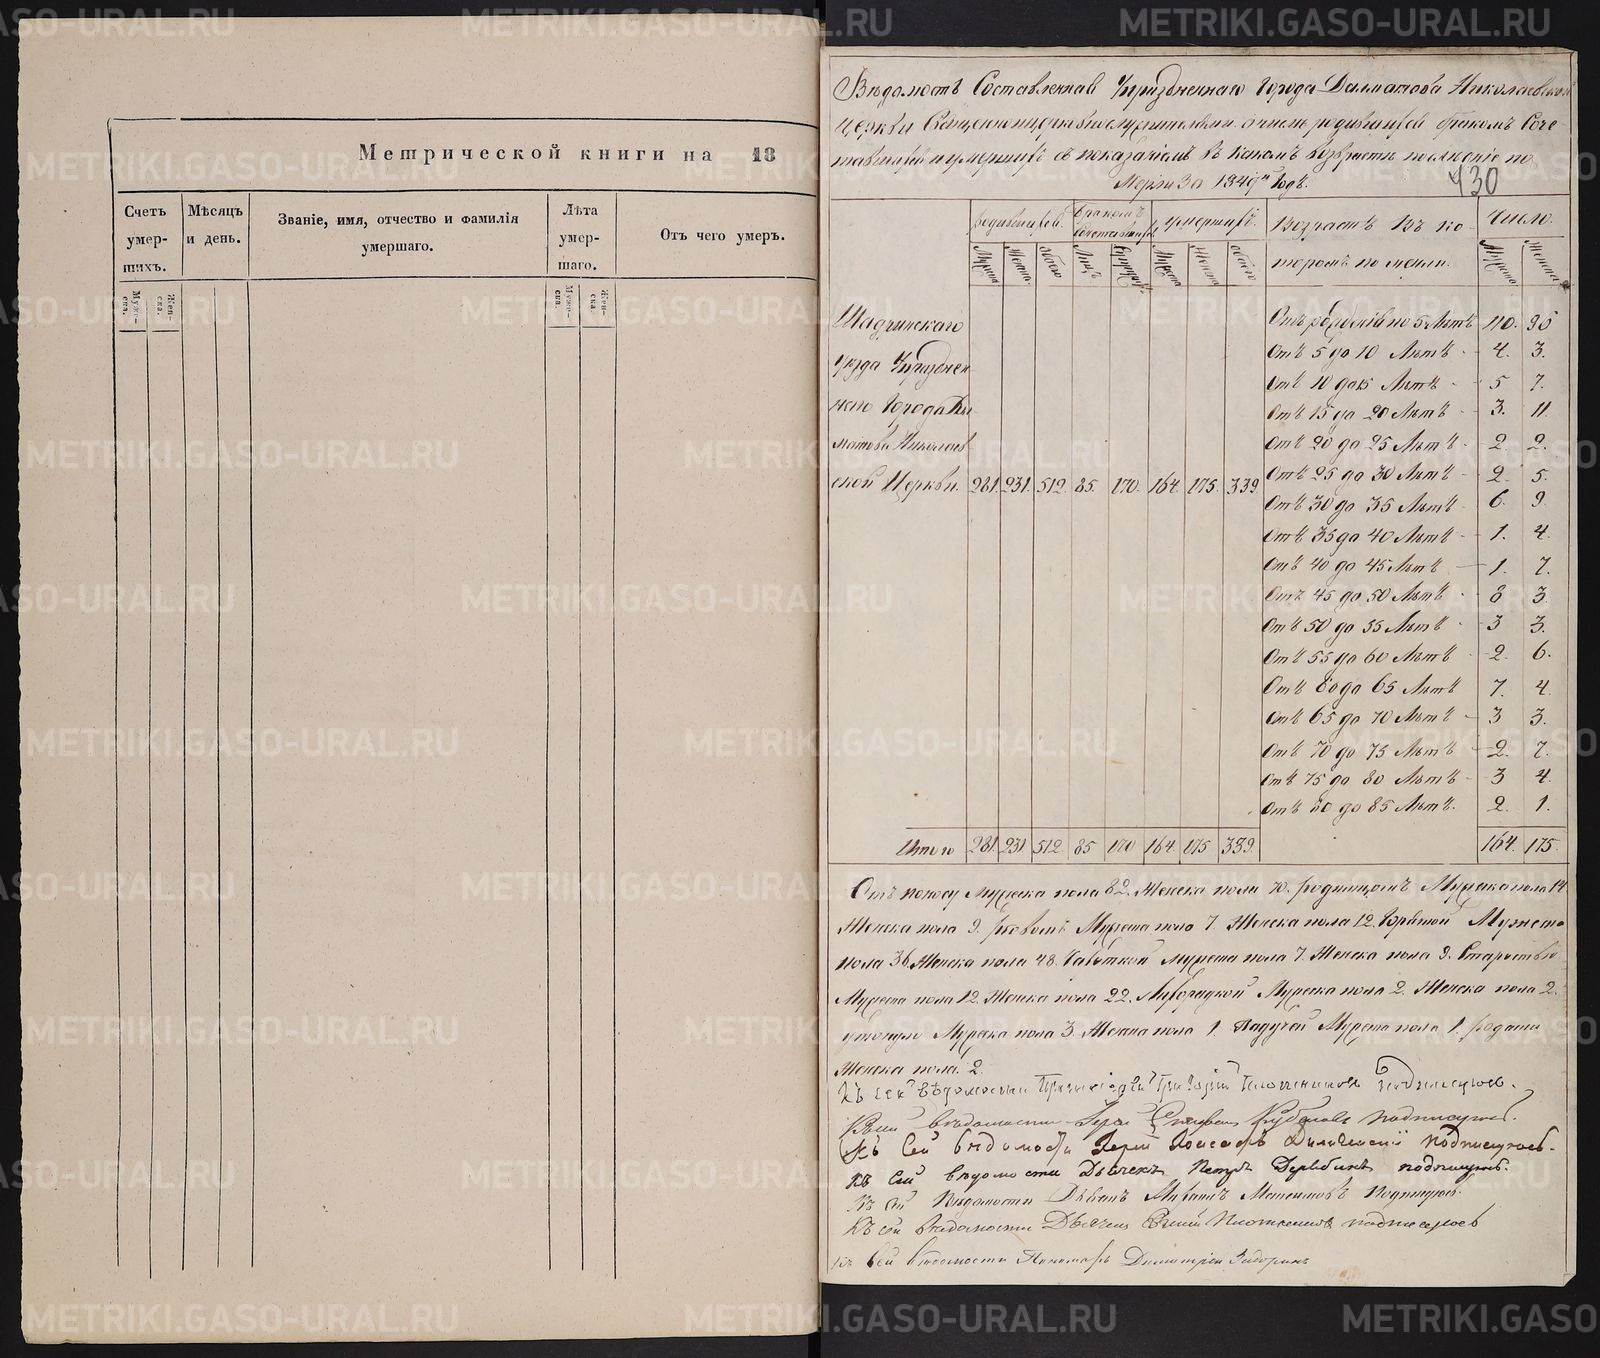 Метрической книги на 18
Счетъ умер-шихъ.
Мѣсяцъ и день.
Званіе, имя, отчество и фамилія умершаго.
Лѣта умер-шаго.
Отъ чего умеръ.
Муже-ска. Жен-ска. Муже-ска. Жен-ска.
Вѣдомость Составленная Упраздненнаго Города Далматова Николаевской
Церкви Священноцерковнослужителями о числѣ родившихся бракомъ Соче-
тавшихся и умершихъ съ показаніемъ въ какомъ возрастѣ послѣдніе по
Мерли За 1849й Годъ.
430
родившихся Бракомъ сочетавшихся умершихъ. Возрастъ Въ ко Число.
торомъ померли.
Шадринскаго
уѣзда Упразднен
наго Города Дал
матова Николаев
ской Церкви. 281. 231. 512. 85. 170. 164. 175. 339
Отъ рожденія до 5 Лѣтъ 110. 95
Отъ 5 до 10 Лѣтъ 4. 3.
Отъ 10 до 15 Лѣтъ 5 7.
Отъ 15 до 20 Лѣтъ 3. 11.
Отъ 20 до 25 Лѣтъ 2. 2.
Отъ 25 до 30 Лѣтъ 2. 5.
Отъ 30 до 35 Лѣтъ 6. 9.
Отъ 35 до 40 Лѣтъ 1. 4.
Отъ 40 до 45 Лѣтъ 1. 7.
Отъ 45 до 50 Лѣтъ 8 3.
Отъ 50 до 55 Лѣтъ 3 3.
Отъ 55 до 60 Лѣтъ 2. 6.
Отъ 60 до 65 Лѣтъ 7. 4.
Отъ 65 до 70 Лѣтъ 3 3.
Отъ 70 до 75 Лѣтъ 2. 7.
Отъ 75 до 80 Лѣтъ 3 4.
Отъ 80 до 85 Лѣтъ. 2. 1.
Итого 281. 231. 512. 85 170 164. 175 339. 164. 175.
Отъ поносу Мужеска пола 82. Женска пола 70. родимцомъ Мужеска пола 14
Женска пола 9. Мужеска пола 7. Женска пола 12. Горячкой Мужеска
пола 36. Женска пола 48. Чахоткой мужеска пола 7. Женска пола 9. Старостью
Мужеска пола 12. Женска пола 22. Лихорадкой Мужеска пола 2. Женска пола 2.
утонуло Мужеска пола 3. Женска пола 1. Падучей Мужеска пола 1. родами
Женска пола. 2.
Къ сей вѣдомости Григорій Плотниковъ подписуюсь.
Къ сей вѣдомости Іерей Стефанъ подписуюсь.
Къ Сей вѣдомости Іерей Іоасафъ подписуюсь.
Къ сей вѣдомости Дьячекъ Петръ Дерябинъ подпишусь.
Къ сей Вѣдомости Максимовъ Подпишуюсь.
Къ сей вѣдомости Дьячекъ Плотниковъ подписуюсь
Къ сей вѣдомости Пономарь Димитрій Задоринъ
METRIKI.GASO-URAL.RU